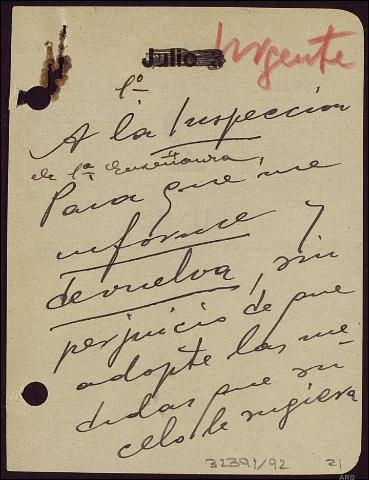 Julio 3 Urgente
1º
A la Inspeccion
de 1ª Enseñanza,
Para que me
informe y
devuelva, sin
perjuicio de que
adopte las me-
didas que su
celo le sugiera
32391/92 21
ARG